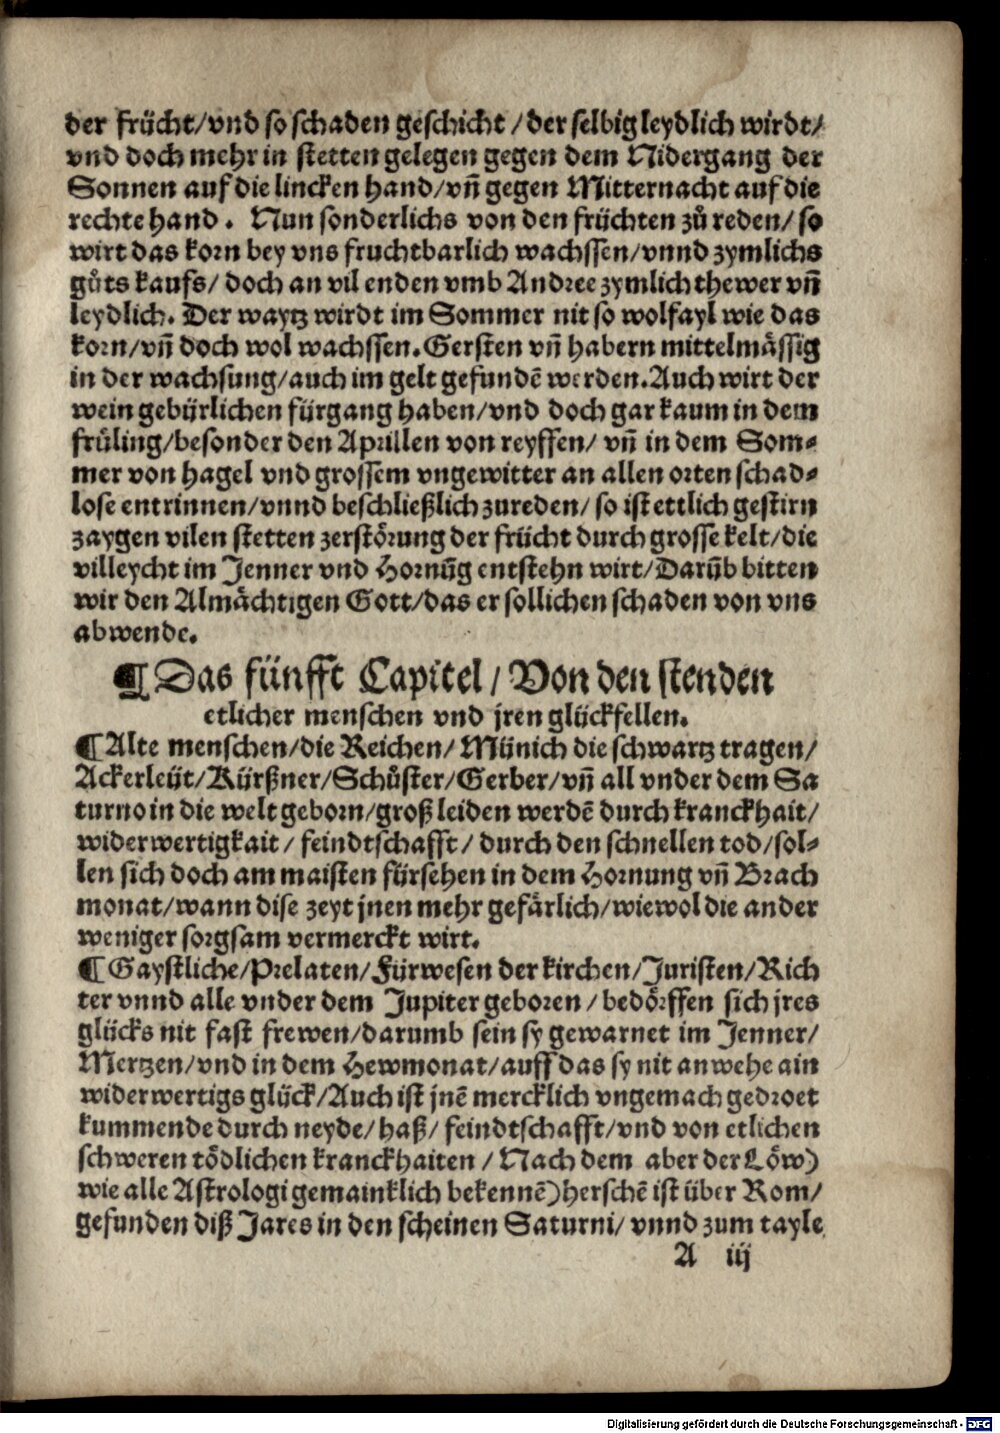 der frücht/vnd so schaden geschicht /der selbig leydlich wirdt/
vnd doch mehr in stetten gelegen gegen dem Nidergang der
Sonnen auf die lincken hand/vñ gegen Mitternacht auf die
rechte hand. Nun sonderlichs von den früchten zů reden/ so
wirt das korn bey vns fruchtbarlich wachssen/vnnd zymlichs
gůts kaufs/ doch an vil enden vmb Andree zymlich thewer vñ
leydlich. Der waytz wirdt im Sommer nit so wolfayl wie das
korn/vñ doch wol wachssen. Gersten vñ habern mittelmåssig
in der wachsung/auch im gelt gefundē werden. Auch wirt der
wein gebürlichen fürgang haben/vnd doch gar kaum in dem
früling/besonder den Aprillen von reyffen/ vñ in dem Som-
mer von hagel vnd grossem vngewitter an allen orten schad-
lose entrinnen/vnnd beschließlich zureden/ so ist ettlich gestirn
zaygen vilen stetten zerstörung der frücht durch grosse kelt/die
villeycht im Jenner vnd Hornūg entstehn wirt/Darūb bitten
wir den Almåchtigen Gott/das er sollichen schaden von vns
abwende.
¶ Das fünfft Capitel / Von den stenden
etlicher menschen vnd jren glückfellen.
¶ Alte menschen/die Reichen/ Münich die schwartz tragen/
Ackerleüt/Kürßner/Schůster/Gerber/vñ all vnder dem Sa
turno in die welt geborn/groß leiden werdē durch kranckhait/
widerwertigkait / feindtschafft / durch den schnellen tod/sol-
len sich doch am maisten fürsehen in dem Hornung vñ Brach
monat/wann dise zeyt jnen mehr gefårlich/wiewol die ander
weniger sorgsam vermerckt wirt.
¶ Gaystliche/Prelaten/Fürwesen der kirchen/Juristen/Rich
ter vnnd alle vnder dem Jupiter geboren / bedörffen sich jres
glücks nit fast frewen/darumb sein sy gewarnet im Jenner/
Mertzen/vnd in dem Hewmonat/auff das sy nit anwehe ain
widerwertigs glück/Auch ist jnē mercklich vngemach gedroet
kummende durch neyde/ haß/ feindtschafft/vnd von etlichen
schweren tödlichen kranckhaiten / Nach dem aber der Löw)
wie alle Astrologi gemainklich bekennē)herschē ist über Rom/
gefunden diß Jares in den scheinen Saturni/ vnnd zum tayle
A iij
Digitalisierung gefördert durch die Deutsche Forschungsgemeinschaft - DFG